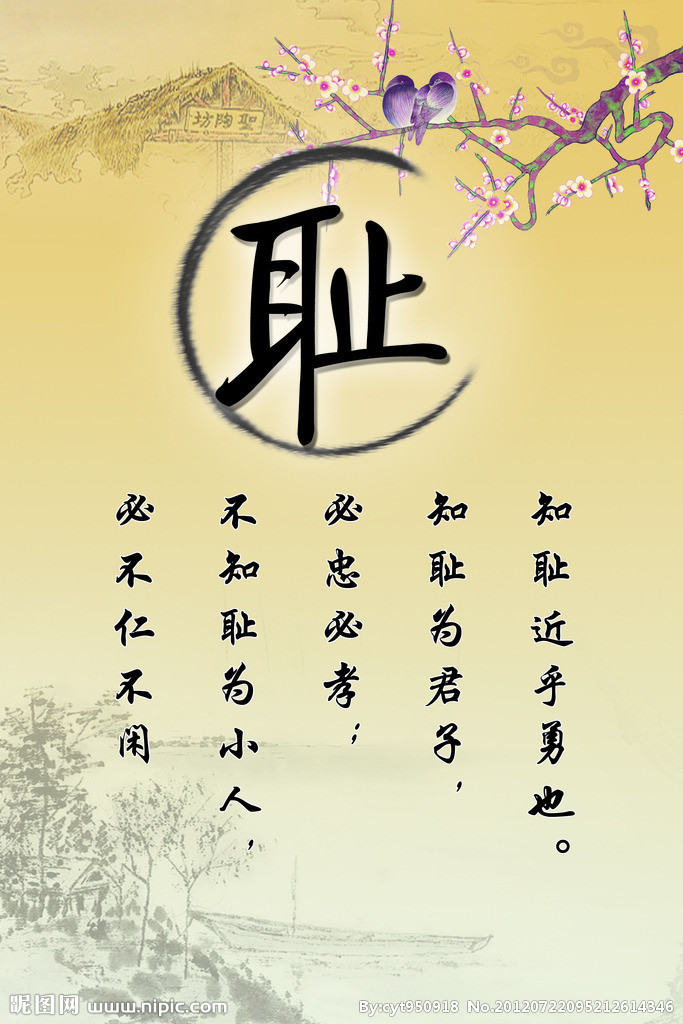 坊陶聖
耻
知耻近乎勇也。
知耻为君子，
必忠必孝；
不知耻为小人，
必不仁不闲
昵图网 www.nipic.com
By:cyt950918 No.20120722095212614346